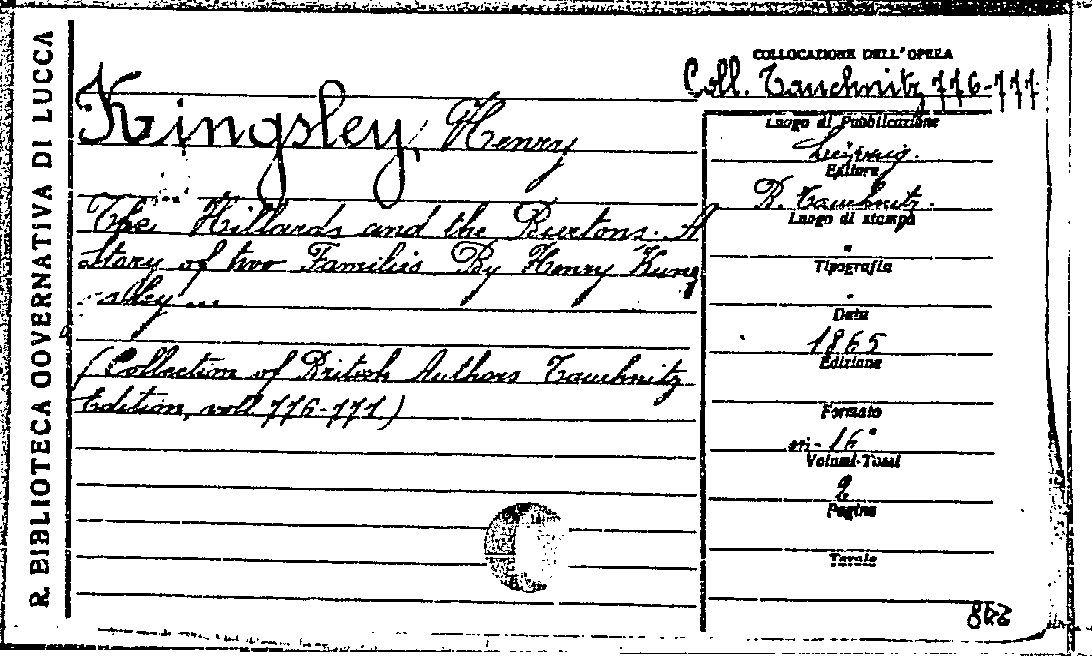 R. BIBLIOTECA GOVERNATIVA DI LUCCA
COLLOCAZIONE DELL'OPERA
Coll. Tauchnitz 776-777
Kingsley, Henry
The Hillards and the Burtons. A
Story of two Families By Henry King
sley ...
(Collection of British Authors Tauchnitz
Edition, voll 776-777)
Luogo di Pubblicazione
Leipzig.
Editore
B. Tauchnitz.
Luogo di stampa
"
Tipografia
Data
1865
Edizione
Formato
in-16°
Volumi-Tomi
2
Pagine
Tavole